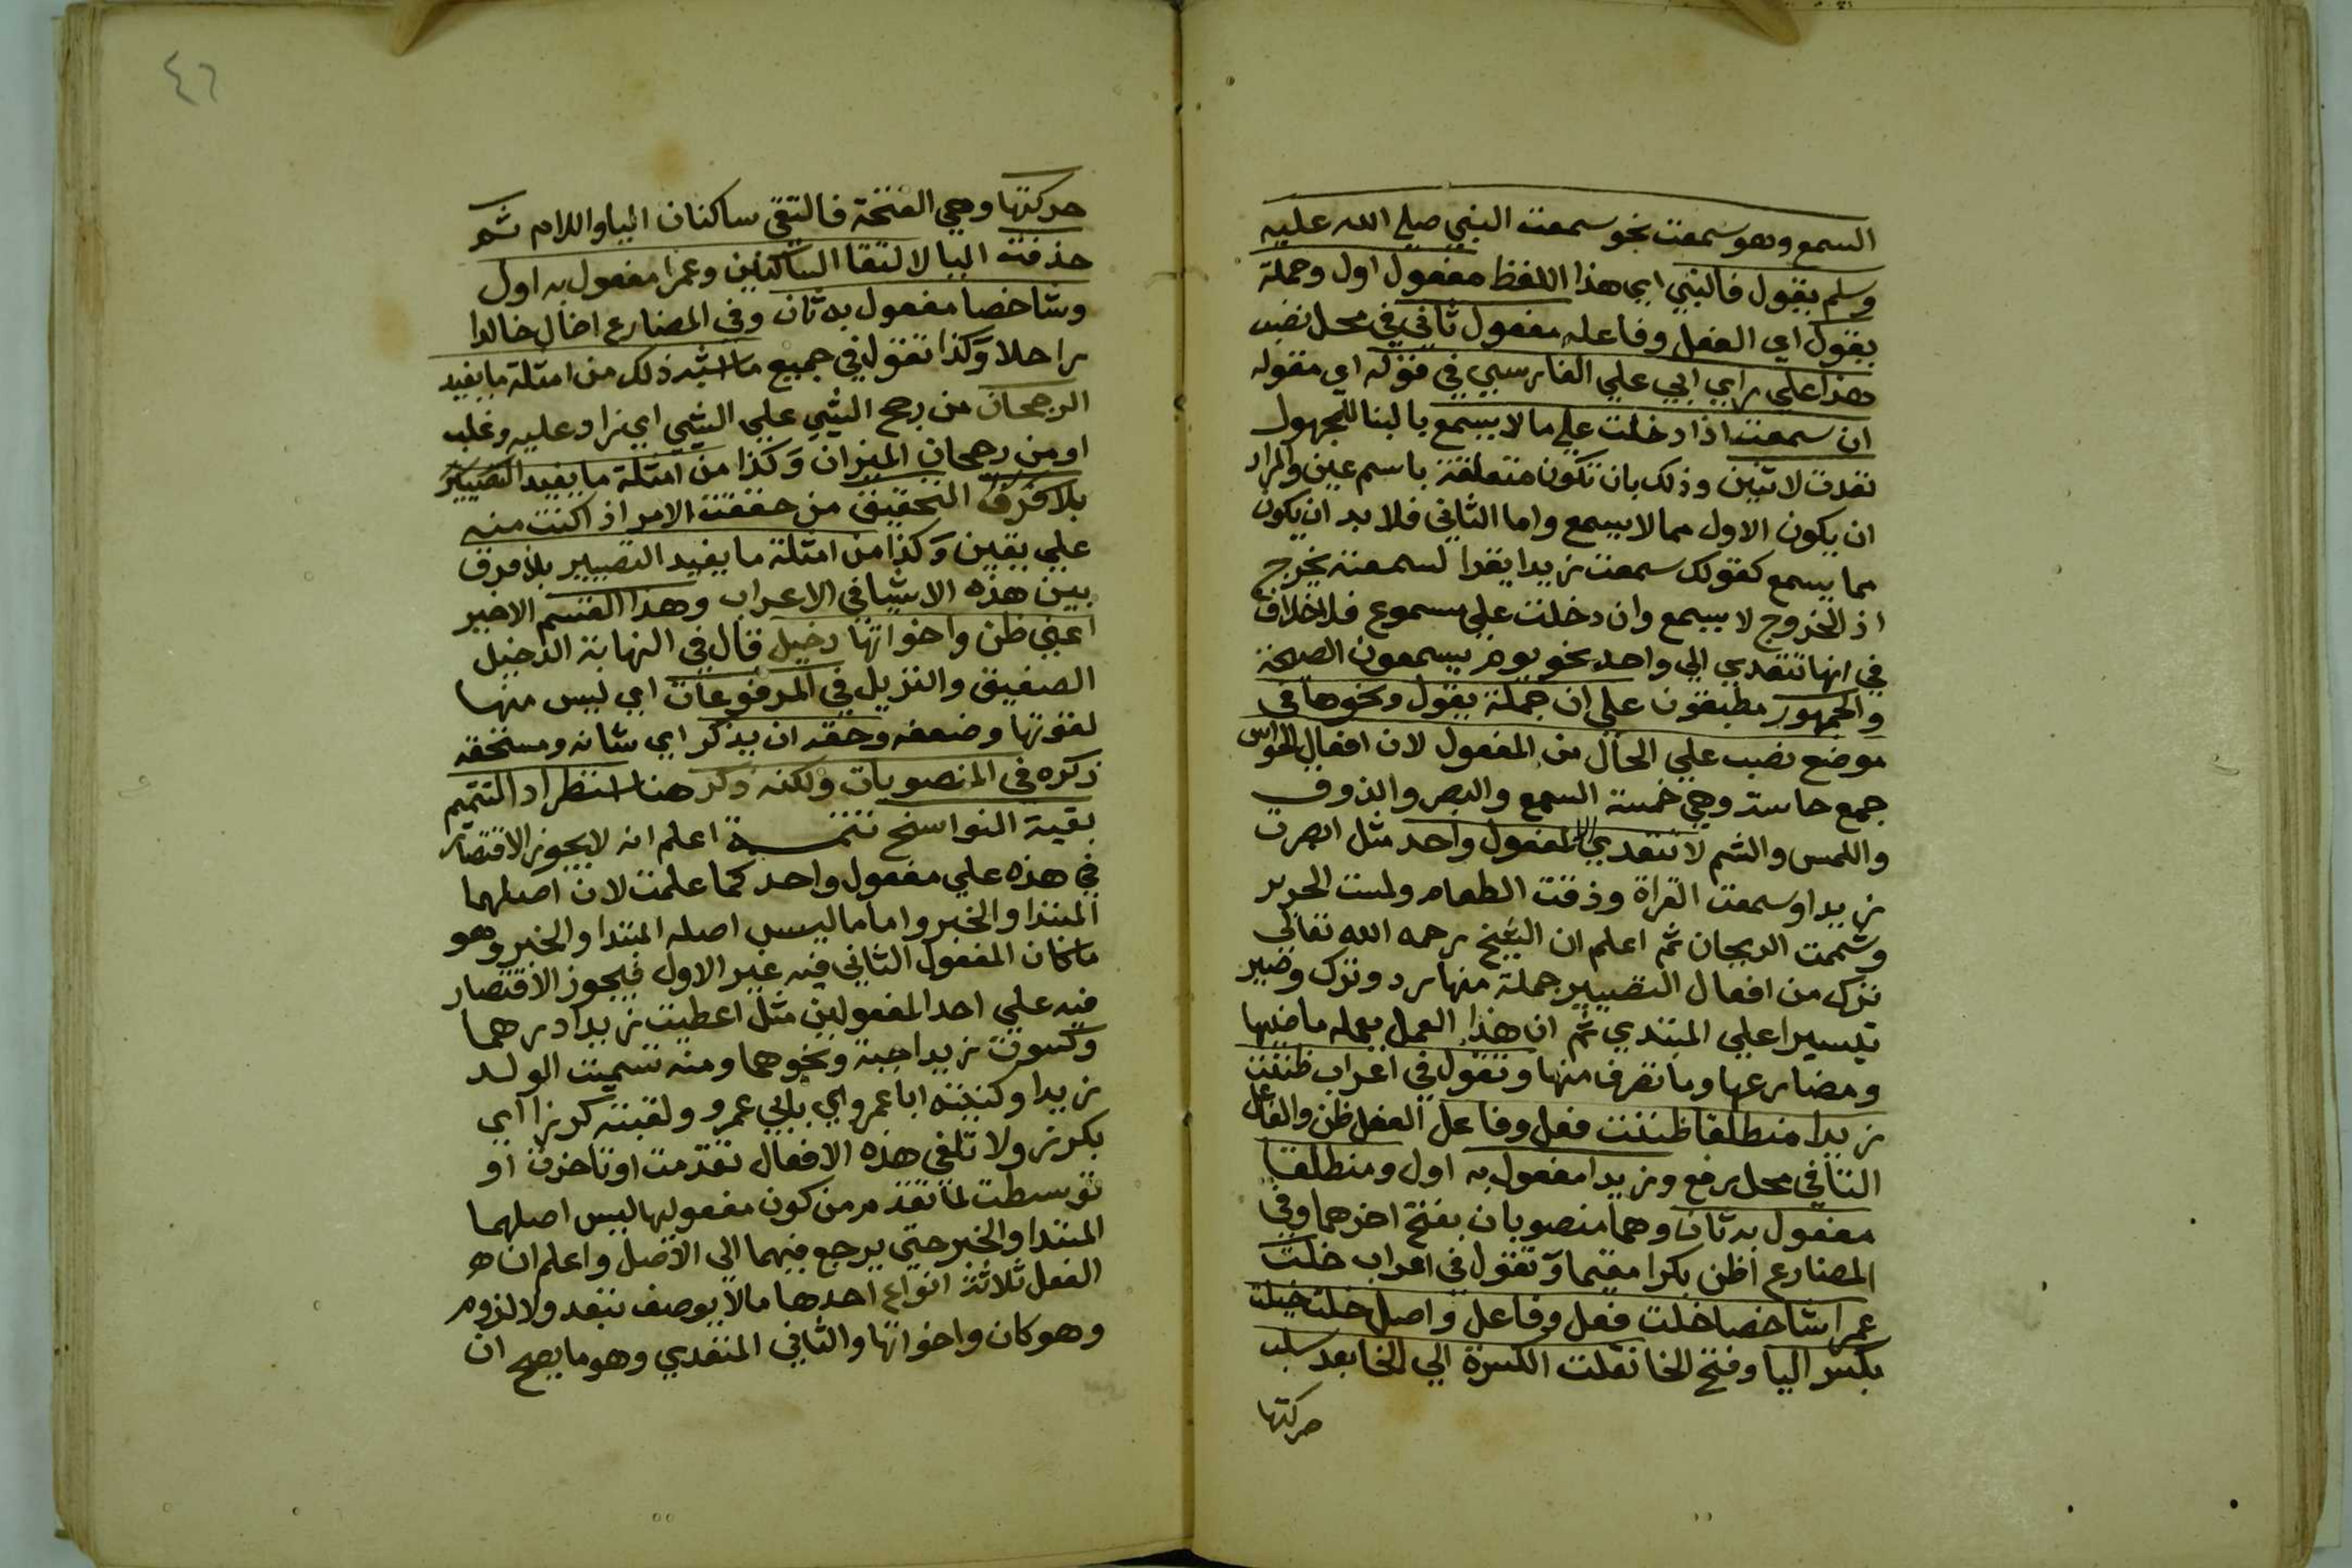 السمع وهو سمعت نحو سمعت النبي صلي الله عليه
وسلم يقول فالنبي اي هذا اللفظ مفعول اول وجملة
يقول اي الفعل وفاعله مفعول ثاني في محل نصب
هذا علي راي ابي علي الفارسي في قوله اي مقوله
ان سمعت اذا دخلت علي ما لا يسمع بالبنا للمجهول
تعدت لاثنين وذلك بان تكون متعلقة باسم عين والمراد
ان يكون الاول مما لا يسمع واما الثاني فلا بد ان يكون
مما يسمع كقولك سمعت زيدا يقرا لسمعته يخرج
اذ الخروج لا يسمع وان دخلت علي مسموع فلا خلاف
في انها تتعدي الي واحد نحو يوم يسمعون الصيحة
والجمهور مطبقون علي ان جملة يقول ونحوها في
موضع نصب علي الحال من المفعول لان افعال الحواس
جمع حاسة وهي خمسة السمع والبصر والذوق
واللمس والشم لا تتعدي الا لمفعول واحد مثل ابصرت
زيدا وسمعت القراة وذقت الطعام ولمست الحرير
وشممت الريحان ثم اعلم ان الشيخ رحمه الله تعالي
ترك من افعال التصيير جملة منها رد وترك وصير
تيسيرا علي المبتدي ثم ان هذا العمل يعمله ماضيها
ومضارعها وما تصرف منها وتقول في اعراب ظننت
زيدا منطلقا ظننت فعل وفاعل الفعل ظن والفاعل
التا في محل رفع وزيدا مفعول به اول ومنطلقا
مفعول به ثان وهما منصوبان بفتح اخرهما وفي
المضارع اظن بكرا مقيما وتقول في اعراب خلت
عمرا شاخصا خلت فعل وفاعل واصل خلت خيلت
بكسر اليا وفتح الخا نقلت الكسرة الي الخا بعد سلب
حركتها
٤٦
حركتها وهي الفتحة فالتقي ساكنان اليا واللام ثم
حذفت اليا لالتقا الساكنين وعمرا مفعول به اول
وشاخصا مفعول به ثان وفي المضارع اخال خالدا
راحلا وكذا تقول في جميع ما اشبه ذلك من امثلة ما يفيد
الرجحان من رجح الشي علي الشي اي زاد عليه وغلب
او من رجحان الميزان وكذا من امثلة ما يفيد التصيير
بلا فرق التحقيق من حققت الامر اذ اكنت منه
علي يقين وكذا من امثلة ما يفيد التصيير بلا فرق
بين هذه الاشيا في الاعراب وهذا القسم الاخير
اعني ظن واخواتها دخيل قال في النهاية الدخيل
الضعيف والنزيل في المرفوعات اي ليس منها
لقوتها وضعفه وحقه ان يذكر اي شانه ومستحقه
ذكره في المنصوبات ولكنه ذكر هنا استطراد التتميم
بقية النواسخ تتمة اعلم انه لا يجوز الاقتصار
في هذه علي مفعول واحد كما علمت لان اصلهما
المبتدا والخبر واما ما ليس اصله المبتدا والخبر وهو
ما كان المفعول الثاني فيه غير الاول فيجوز الاقتصار
فيه علي احد المفعولين مثل اعطيت زيدا درهما
وكسوت زيدا جبة ونحوهما ومنه سميت الولد
زيدا وكنيته ابا عمرو اي بابي عمرو ولقبته كرزا اي
بكرز ولا تلغي هذه الافعال تقدمت او تاخرت او
توسطت لما تقدم من كون مفعوليها ليس اصلهما
المبتدا والخبر حتي يرجع فيهما الي الاصل واعلم ان
الفعل ثلاثة انواع احدها ما لا يوصف بتعد ولا لزوم
وهو كان واخواتها والثاني المتعدي وهو ما يصح ان